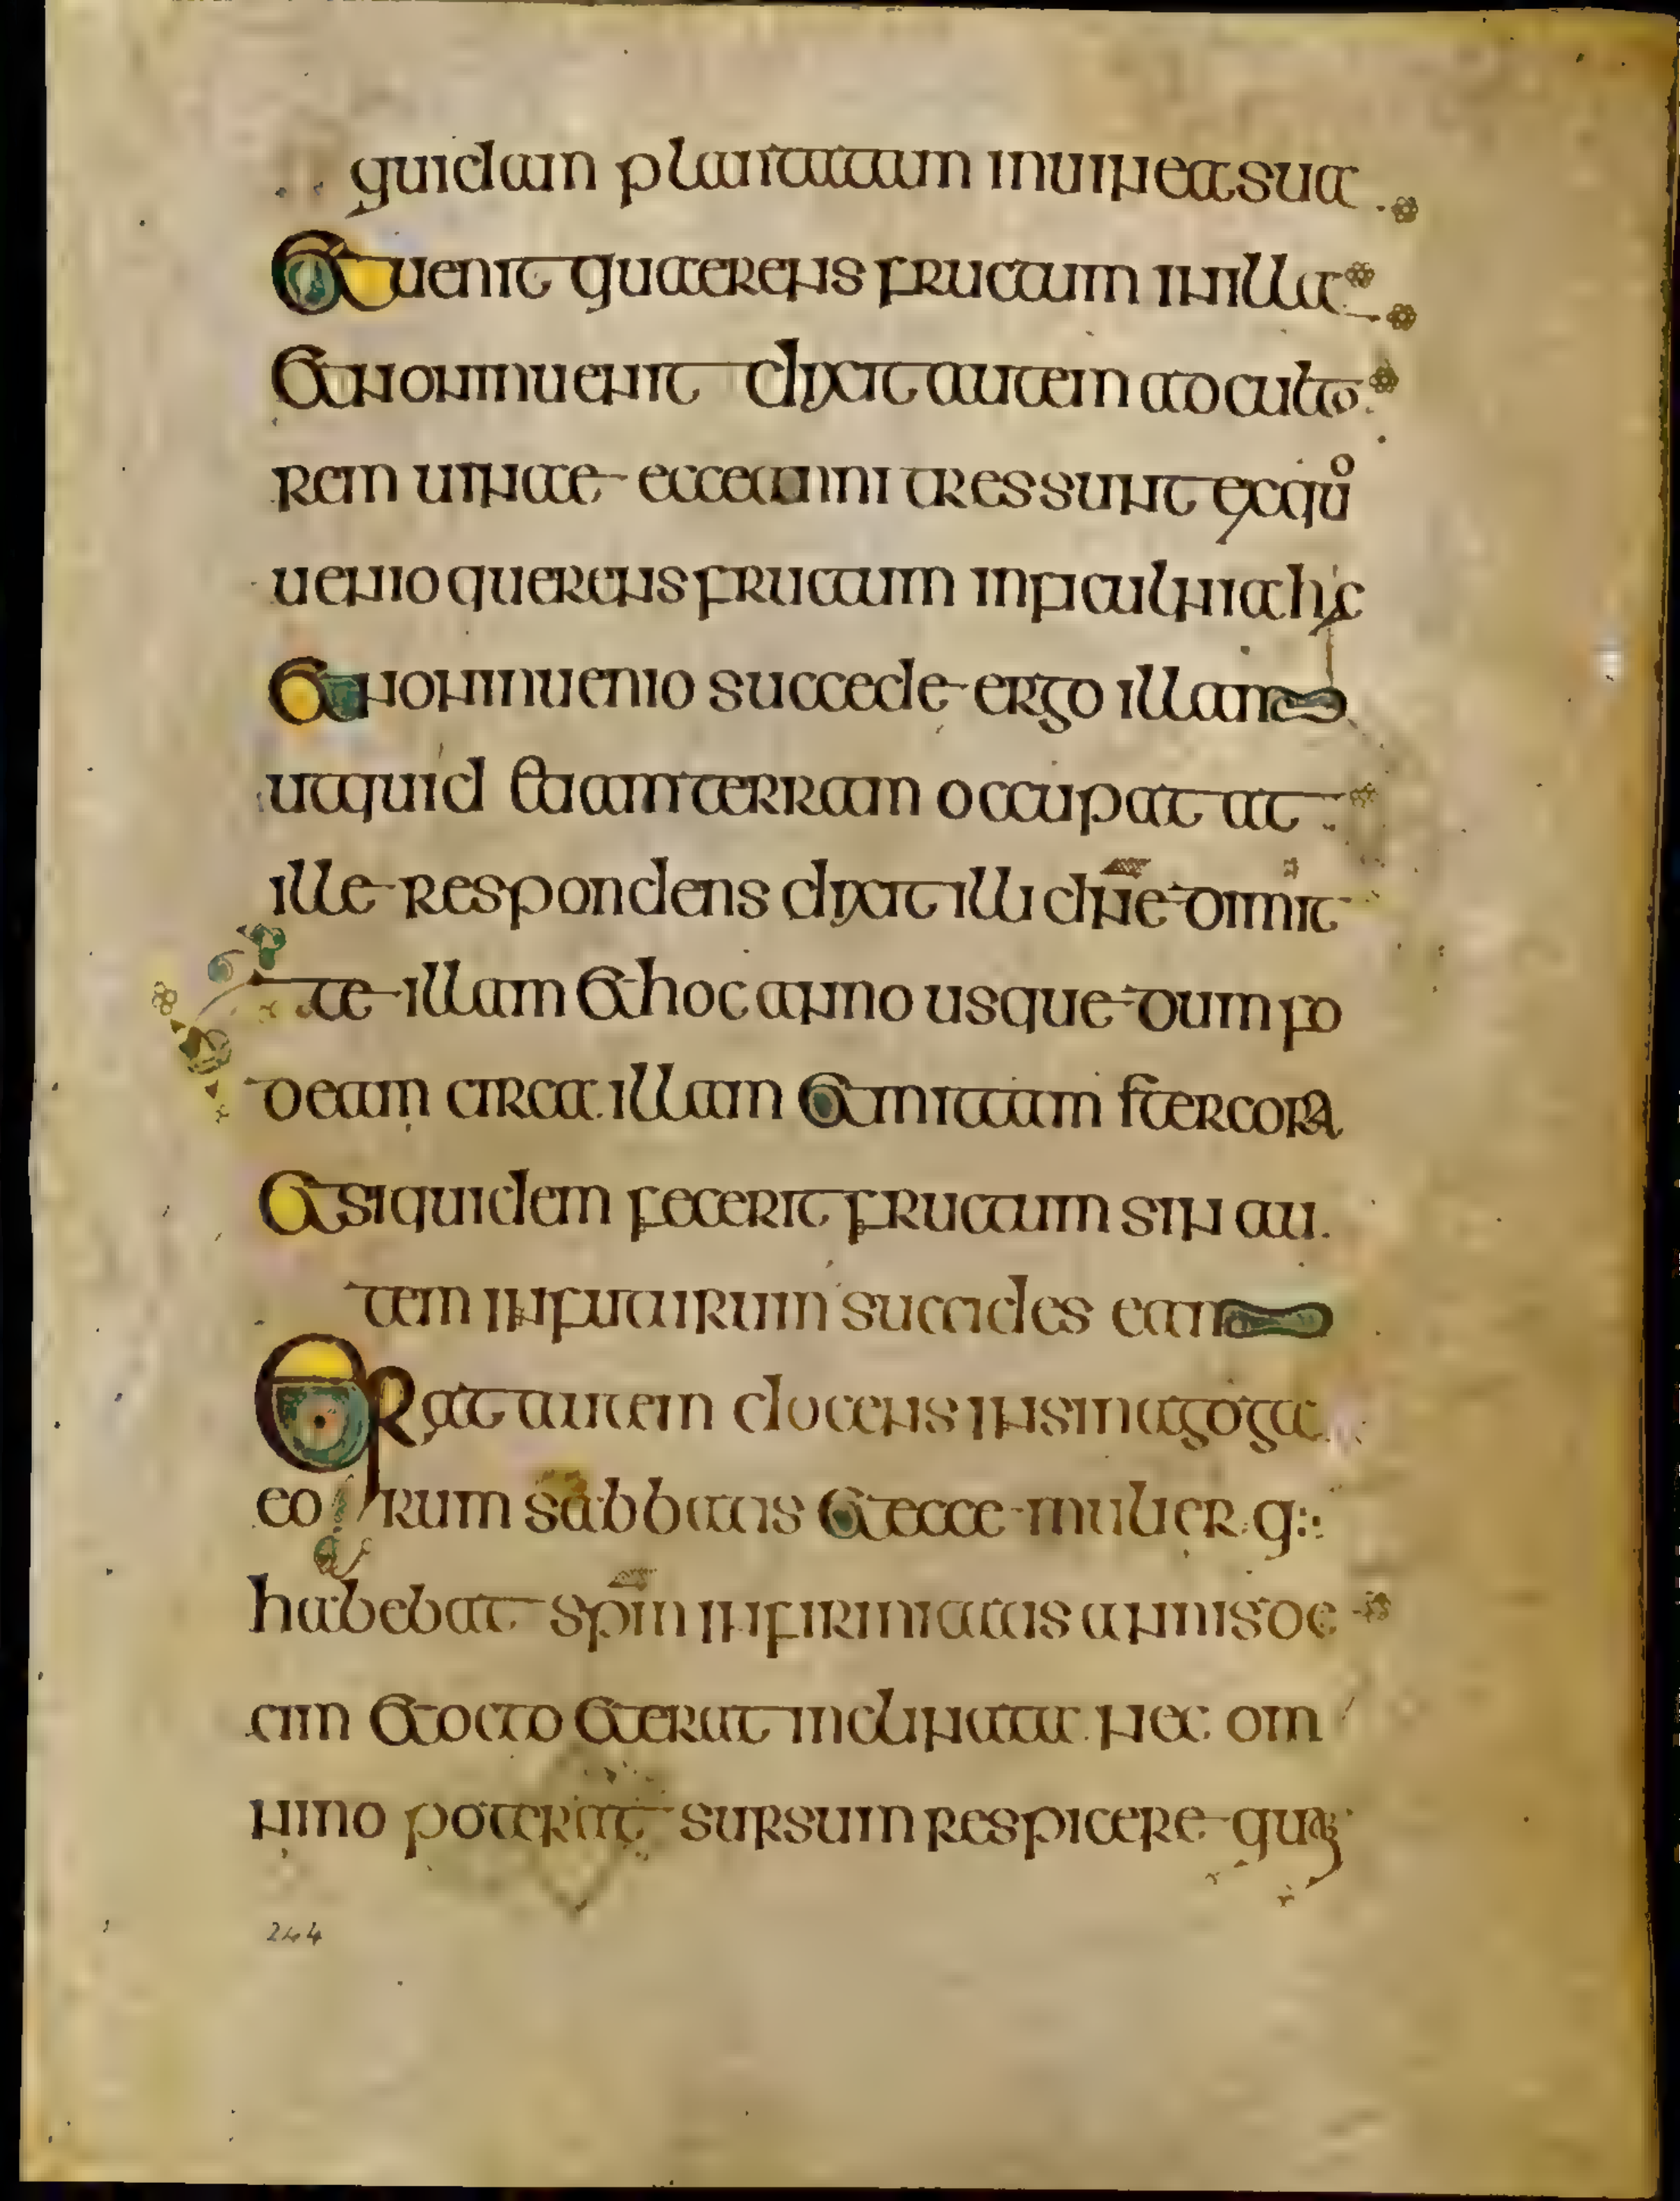 quidam plantatam inuineasua
Et uenit quaerens fructum inilla
Et noninuenit dixit autem adculto
rem uineae ecce anni tres sunt exquo
uenio querens fructum inficulnia hac
Et noninuenio succede ergo illam
utquid etiam terram occupat at
ille respondens dixit illi dne dimit
te illam et hoc anno usque dum fo
deam circa illam et mittam stercora
Et siquidem fecerit fructum sin au
tem infuturum succides eam
Erat autem docens insinagoga
eorum sabbatis et ecce mulier q::
habebat spm infirmitatis annis de
cim et octo et erat inclinata nec om
nino poterat sursum respicere quā
244